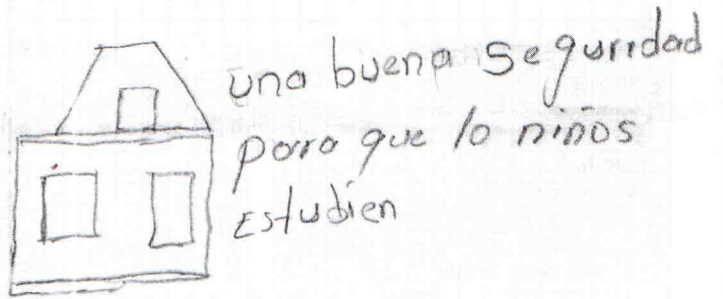 una buena seguridad
para que lo niños
Estudien